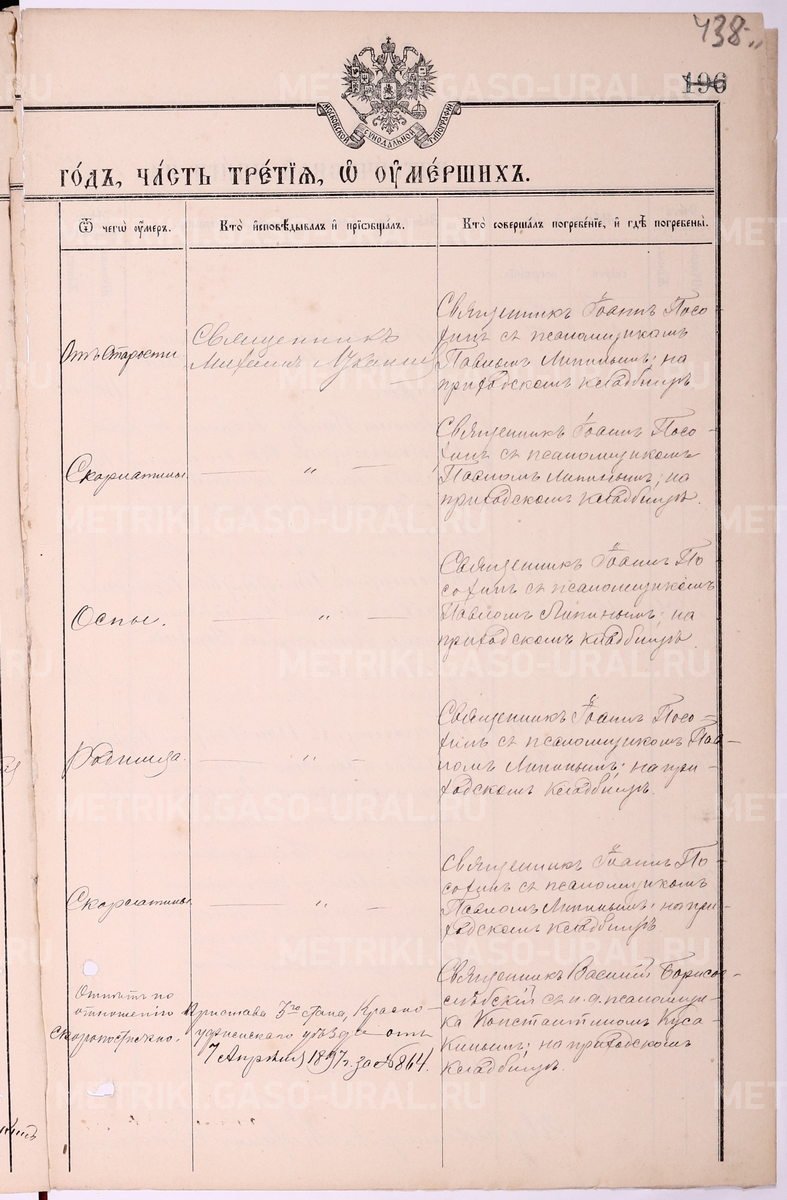 438
196
МОСКОВСКОЙ СѴНОДАЛЬНОЙ ТИПОГРАФІИ
ГО́ДЪ, ЧА́СТЬ ТРЕ́ТІѦ, Ѡ҆ ОУ҆МЕ́РШИХЪ.
Ѿ чегѡ̀ оу҆́меръ.
Кто̀ и҆сповѣ́дывалъ и҆ прїѡбща́лъ.
Кто̀ соверша́лъ погребе́нїе, и҆ гдѣ̀ погребены̀.
Отъ старости
Священникъ
Михаилъ
Священникъ Іоаннъ Посо-
хинъ съ псаломщикомъ
Павломъ Липинымъ; на
приходскомъ кладбищѣ
Скорлатины
— " —
Священникъ Іоаннъ Посо-
хинъ съ псаломщикомъ
Павломъ Липинымъ; на
приходскомъ кладбищѣ.
Оспы.
— " —
Священникъ Іоаннъ По
сохинъ съ псаломщикомъ
Павломъ Липинымъ; на
приходскомъ кладбищѣ
Родимца.
— " —
Священникъ Іоаннъ Посо-
хинъ съ псаломщикомъ Пав-
ломъ Липинымъ; на при-
ходскомъ кладбищѣ.
Скорлатины
— " —
Священникъ Іоаннъ По-
сохинъ съ псаломщикомъ
Павломъ Липинымъ; на при-
ходскомъ кладбищѣ
Отпѣтъ по
отношенію Пристава 3го стана, Красно-
скоропостижно. уфимскаго уѣзда отъ
7 Апрѣля 1897 г. за № 864.
Священникъ Василій Борисо-
глѣбскій съ и. д. псаломщи-
ка Константиномъ Куса-
кинымъ; на приходскомъ
кладбищѣ.
METRIKI.GASO-URAL.RU